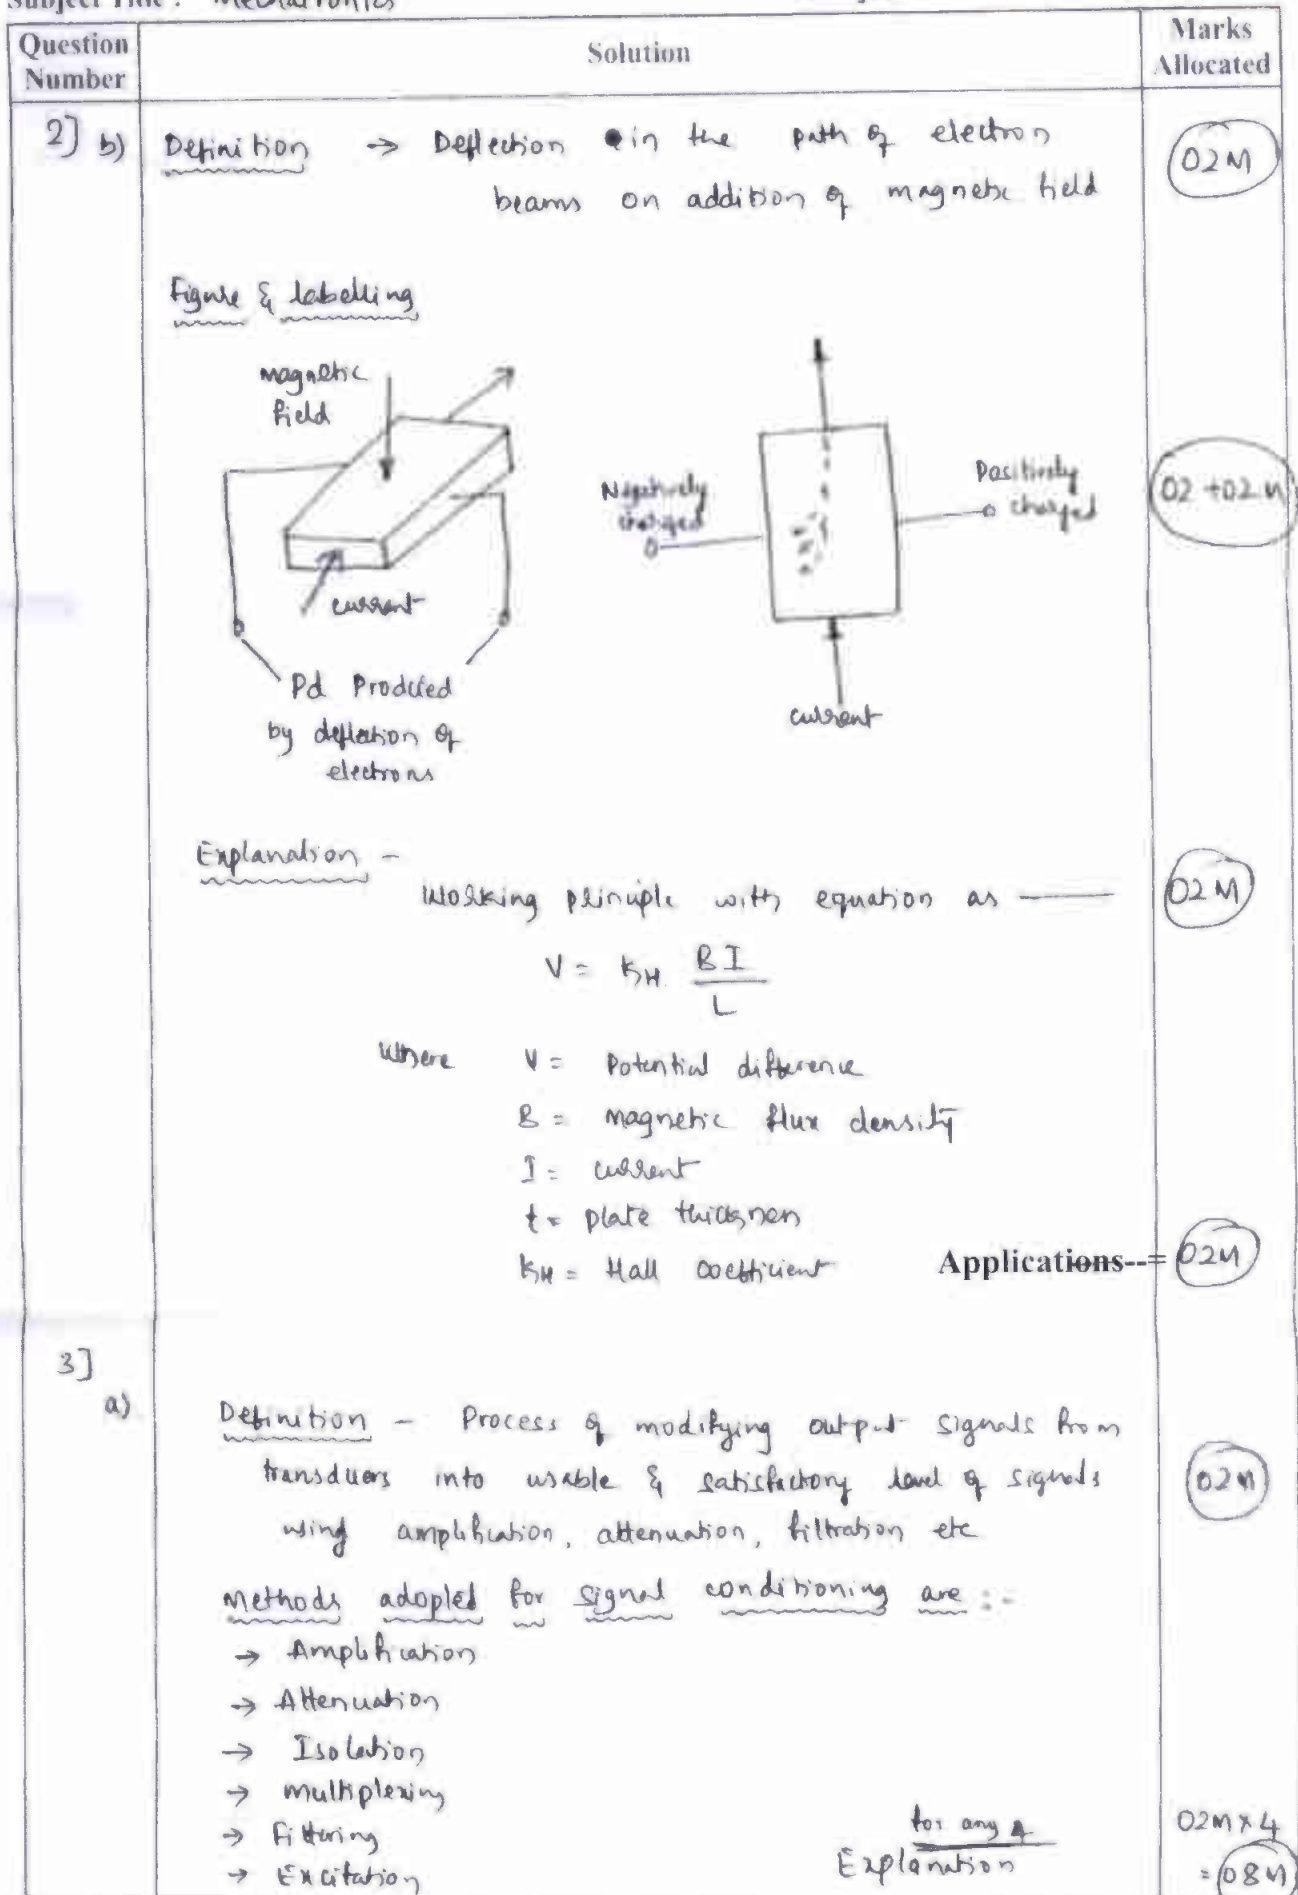 Subject Title : Mechatronics
Question Number
Solution
Marks Allocated
2] b)
Definition → Deflection in the path of electron
beams on addition of magnetic field
02M
Figure & labelling
magnetic
field
current
Pd Produced
by deflection of
electrons
Negatively
charged
Positively
charged
current
02 +02 M
Explanation -
Working principle with equation as ——
02 M
V = KH BI
L
Where V = Potential difference
B = magnetic flux density
I = current
t = plate thickness
KH = Hall coefficient Applications--= 02M
3]
a)
Definition - Process of modifying output signals from
transducers into usable & satisfactory level of signals
using amplification, attenuation, filtration etc
02M
Methods adopted for signal conditioning are :-
→ Amplification
→ Attenuation
→ Isolation
→ multiplexing
→ Filtering
→ Excitation
for any 4
Explanation
02M x 4
= 08M